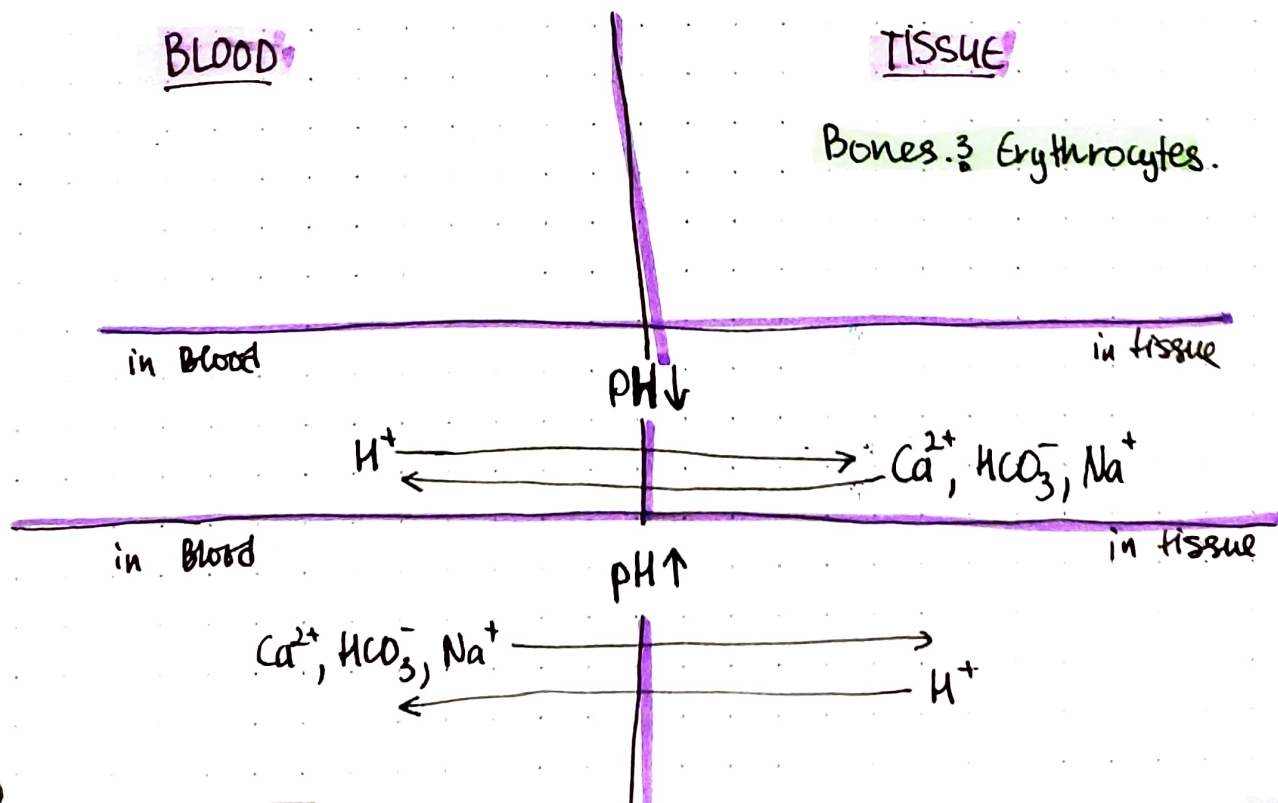 BLOOD
TISSUE
Bones. & Erythrocytes.
in Blood
in tissue
pH↓
H⁺
Ca²⁺, HCO₃⁻, Na⁺
in Blood
in tissue
pH↑
Ca²⁺, HCO₃⁻, Na⁺
H⁺